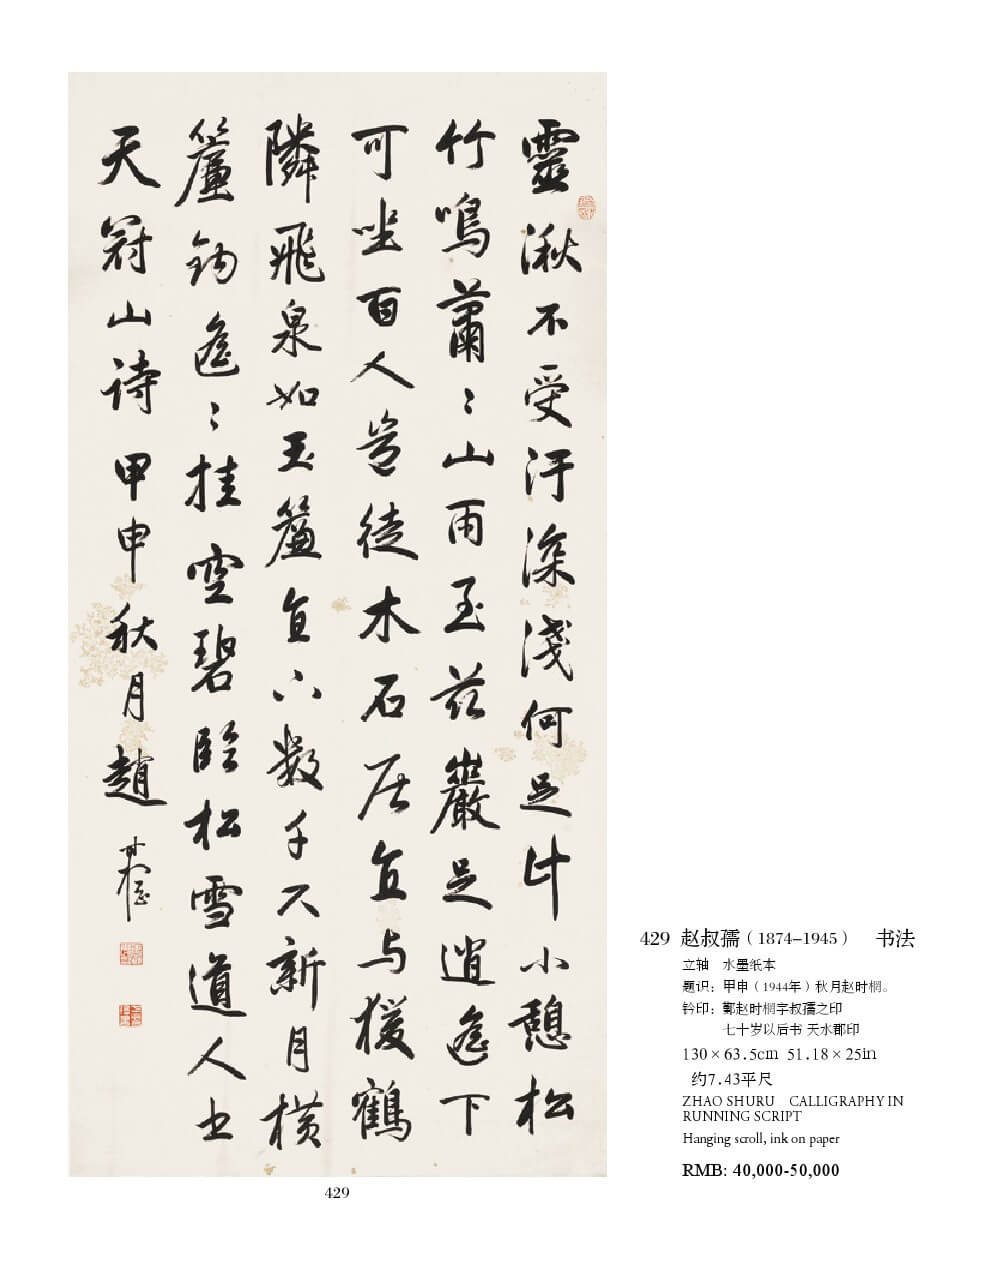 靈湫不受汙深淺何足計小憩松
竹鳴蕭〻山雨至茲巖足逍遙下
可坐百人豈徒木石居宜与猨鶴
隣飛泉如玉簾直下數千尺新月橫
簾鈎遙〻挂空碧臨松雪道人书
天冠山詩甲申秋月趙時棡
429
429 赵叔孺（1874–1945） 书法
立轴 水墨纸本
题识：甲申（1944年）秋月赵时棡。
钤印：鄞赵时棡字叔孺之印
七十岁以后书 天水郡印
130×63.5cm 51.18×25in
约7.43平尺
ZHAO SHURU CALLIGRAPHY IN
RUNNING SCRIPT
Hanging scroll, ink on paper
RMB: 40,000-50,000